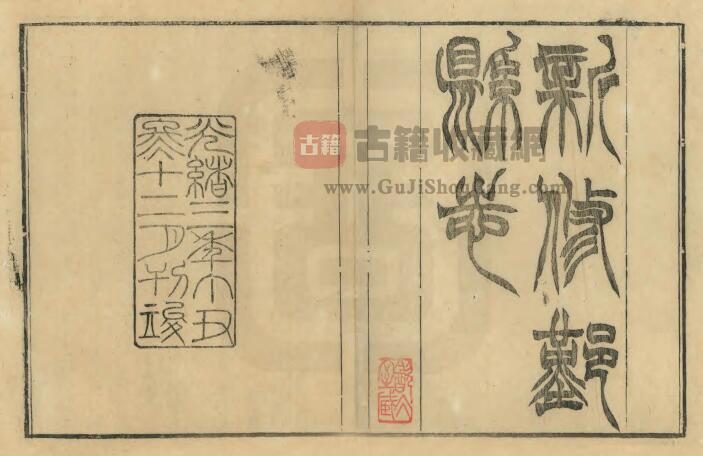 新修鄞
縣志
光緒三年丁丑
冬十二月刊竣
古籍
古籍收藏網
www.GuJiShouCang.com